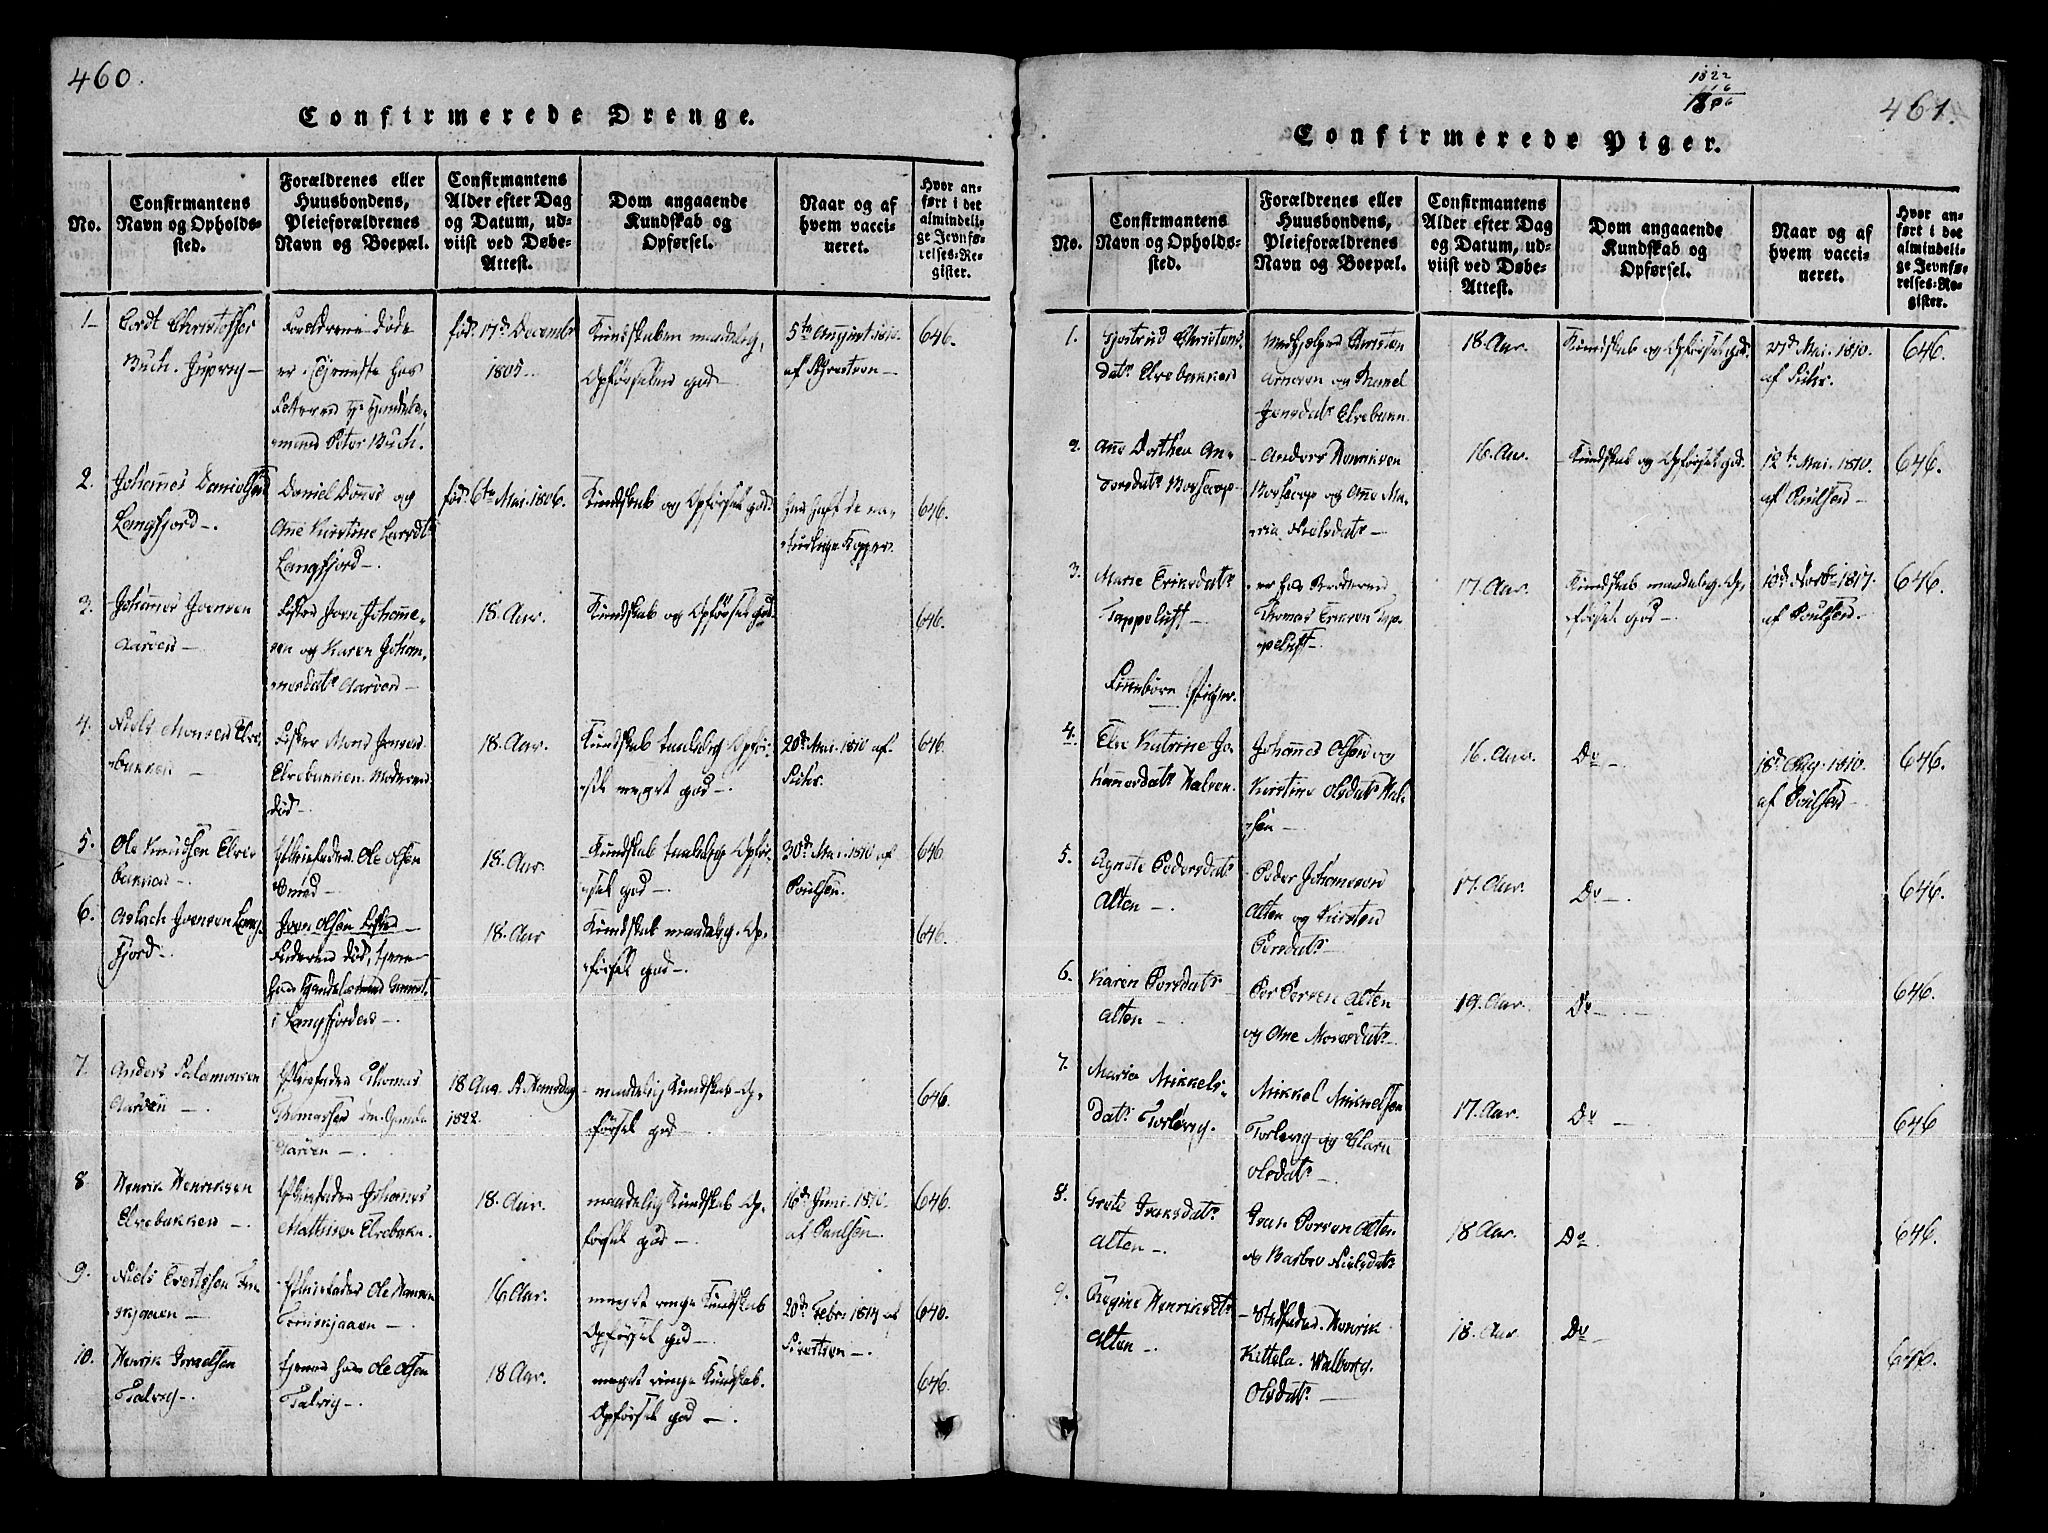 460.
Confirmerede Drenge.
No.
Confirmantens
Navn og Opholds-
sted.
Forældrenes eller
Huusbondens,
Pleieforældrenes
Navn og Boepæl.
Confirmantens
Alder efter Dag
og Datum, ud-
viist ved Døbe-
Attest.
Dom angaaende
Kundskab og
Opførsel.
Naar og af
hvem vacci-
neret.
Hvor an-
ført i det
almindeli-
ge Jevnfø-
relses-Re-
gister.
1
Christoffer
Buch.
Forældrene døde
er i Tjeneste hos
Peter Buch.
fød. 17de Decembr
1805.
Kundskaben maadelig,
Opførselen god
5te August 1810.
646.
2.
Johannes Danielsen
Langfjord
Daniel og
Ane Kirstine
Langfjord
fød. 6te Mai. 1806.
Kundskab og Opførsel god.
har haft de na-
turlige Kopper.
646.
3.
Johannes Joensen
Aarøen
Johanne-
sen og Karen Johan-
nesdatr Aarøen
18. Aar.
Kundskab og Opførsel god.
646.
4.
Niels Monsen Elve-
bakken
Fisker Mons Jensen
Elvebakken. Moderen
død
18. Aar.
Kundskab taalelig Opfør-
sel meget god
20de Mai. 1810 af
646.
5.
Ole Knudsen Elve-
bakken
Pleiefader Ole Olsen
18. Aar.
Kundskab taalelig Opfør-
sel god
30de Mai. 1810 af
Poulsen.
646
6.
Aslach Joensen Lang-
fjord
Olsen
Faderen død, tjener
hos Handelsmand
i Langfjorden
18. Aar
Kundskab maadelig. Op-
førsel god
646.
7.
Anders Salamonsen
Aarøen
Pleiefader Thomas
Thomassen
Aarøen
18 Aar
1822.
maadelig Kundskab Op-
førsel god
646.
8.
Henrik Henriksen
Elvebakken
Pleiefader Johannes
Mathisen Elvebakken.
18. Aar.
maadelig Kundskab Op-
førsel god
16de Juni. 1810.
af Poulsen.
646.
9.
Niels
Pleiefader Ole Hansen
16. Aar.
meget ringe Kundskab
Opførsel god
20de Febr. af
646.
10.
Henrik Israelsen
Talvig
tjener hos Ole Olsen
Talvig
18 Aar.
meget ringe Kundskab.
Opførsel god
646.
1822
16
1806
461.
Confirmerede Piger.
No.
Confirmantens
Navn og Opholds-
sted.
Forældrenes eller
Huusbondens,
Pleieforældrenes
Navn og Boepæl.
Confirmantens
Alder efter Dag
og Datum, ud-
viist ved Døbe-
Attest.
Dom angaaende
Kundskab og
Opførsel.
Naar og af
hvem vacci-
neret.
Hvor an-
ført i det
almindeli-
ge Jevnfø-
relses-Re-
gister.
1.
Christens-
datr Elvebakken
Medhjelper Christen
Arnesen og
Jensdatr Elvebakken.
18. Aar.
Kundskab og Opførsel god.
Mai. 1810.
646.
2.
Ane Dorthea An-
dersdatr Bossecop
Anders Henriksen
Bossecop og Ane Ma-
ria Nielsdatr
16. Aar.
Kundskab og Opførsel god.
12te Mai. 1810.
af Poulsen
646.
3.
Marie Eriksdatr
Tappeluft
er hos Broderen
Thomas Eriksen Tap-
peluft
17. Aar.
Kundskab maadelig. Op-
førsel god
1817.
af Poulsen.
646.
Finnebørn Piger.
4.
Else Katrine Jo-
hannesdatr
Johannes Olsen og
Kirstine Olsdatr
16. Aar.
Do
18de Aug. 1810.
af Poulsen
646.
5.
Agnete Pedersdatr
Alten
Peder Johannesen
Alten og Kirsten
Persdatr
17. Aar.
Do
646.
6.
Karen Persdatr
Alten
Per Persen Alten
og Ane Monsdatr
19. Aar.
Do
646.
7.
Maria Mikkels-
datr
Mikkel Mikkelsen
og Clara
Olsdatr.
17. Aar.
Do
646
8.
Grete Iversdatr
Alten
Iver Persen Alten
og Barbro Nielsdatr
18 Aar.
Do
646.
9.
Regine Henriksdatr
Alten
Henrik
Kittela. Walborg
Olsdatr
18. Aar
Do
646.